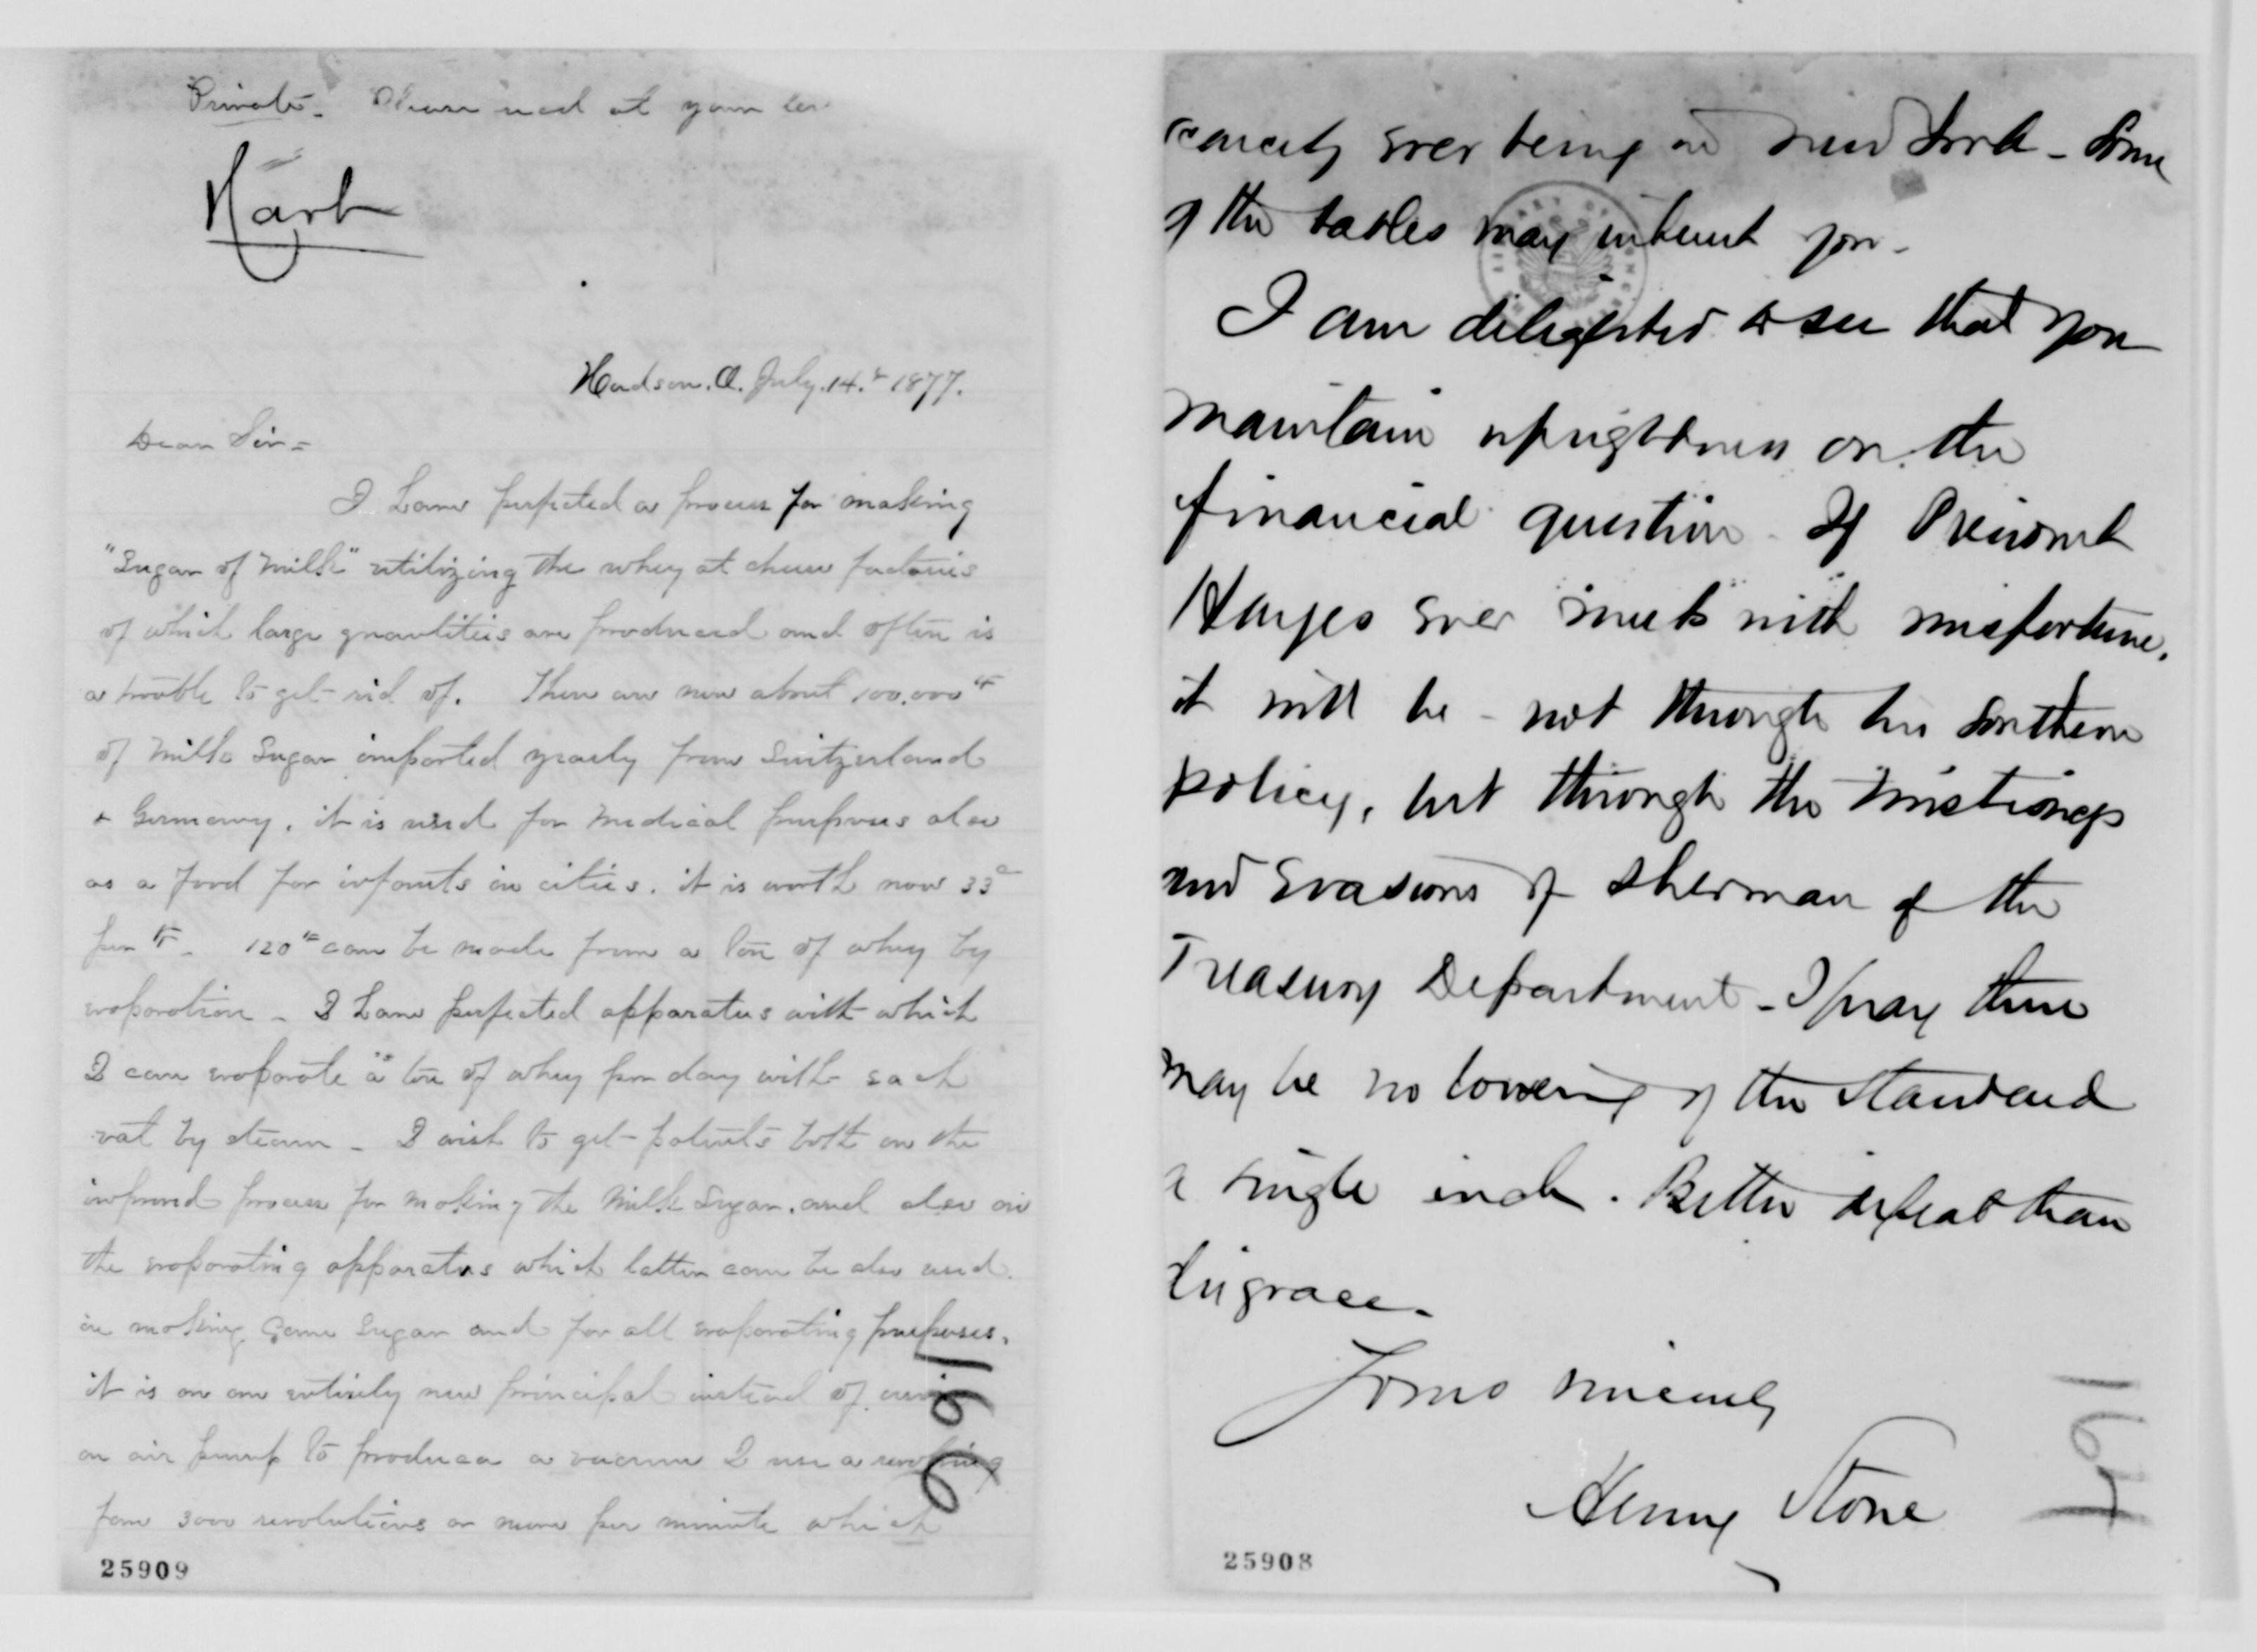 Private. Please read at your
Hart
Hudson. O. July. 14. 1877.
Dear Sir =
I have perfected a process for making
"Sugar of Milk" utilizing the whey at cheese factories
of which large quantities are produced and often is
a trouble to get rid of. There are now about 100,000 ℔
of Milk Sugar imported yearly from Switzerland
& Germany, it is used for medical purposes also
as a food for infants in cities. it is worth now 33c
per ℔ - 120 ℔ can be made from a ton of whey by
evaporation - I have perfected apparatus with which
I can evaporate a ton of whey per day with each
vat by steam - I wish to get patents both on the
improved process for making the Milk Sugar. and also on
the evaporating apparatus which latter can be also used
in making Cane Sugar and for all evaporating purposes.
it is on an entirely new principal instead of using
an air pump to produce a vacuum I use a revolving
fan 3000 revolutions or more per minute which
25909
scarcely ever being in New York - Some
of the tables may interest you -
I am delighted to see that you
maintain uprightness on the
financial question. If President
Hayes ever meets with misfortune,
it will be - not through his Southern
policy, but through the
and evasions of Sherman of the
Treasury Department - I pray there
may be no lowering of the standard
a single inch. Better defeat than
disgrace.
Yours sincerely
Henry Stone
25908